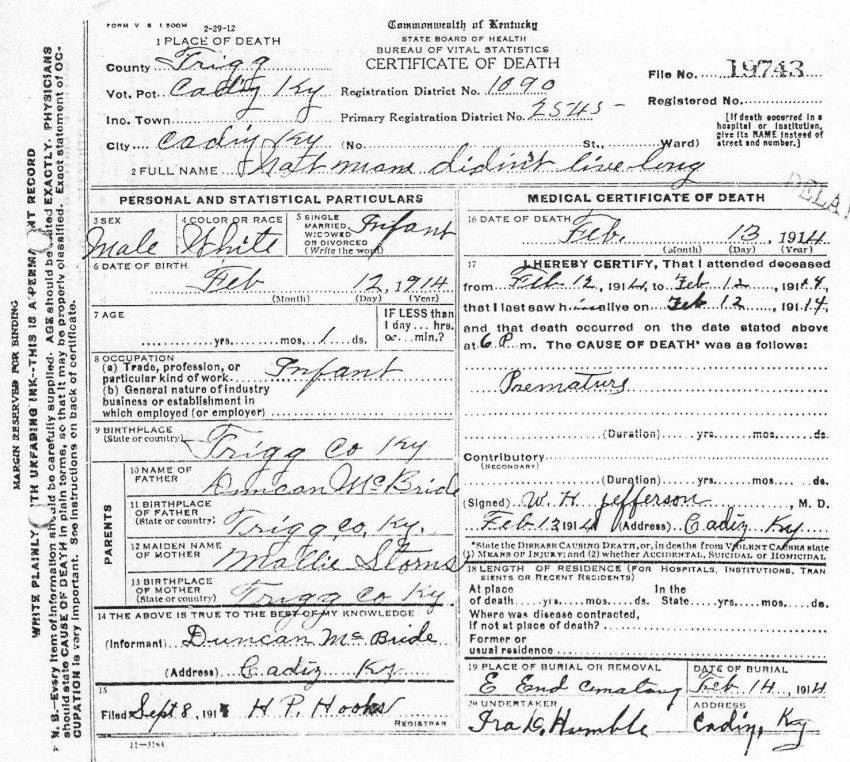 FORM V S 1 500M 2-29-12
Commonwealth of Kentucky
STATE BOARD OF HEALTH
BUREAU OF VITAL STATISTICS
CERTIFICATE OF DEATH
1 PLACE OF DEATH
County Trigg
File No. 19743
Vot. Pct Cadiz Ky Registration District No. 1090
Registered No.
Inc. Town Primary Registration District No. 2545
[If death occurred in a
hospital or institution,
give its NAME instead of
street and number.]
City Cadiz Ky (No. St., Ward)
2 FULL NAME didn't live long
PERSONAL AND STATISTICAL PARTICULARS
3 SEX
Male
4 COLOR OR RACE
White
5 SINGLE
MARRIED,
WIDOWED
OR DIVORCED
(Write the word)
Infant
6 DATE OF BIRTH
Feb 12, 1914
(Month) (Day) (Year)
7 AGE
yrs. mos. 1 ds.
IF LESS than
1 day... hrs.
or... min.?
8 OCCUPATION
(a) Trade, profession, or
particular kind of work Infant
(b) General nature of industry
business or establishment in
which employed (or employer)
9 BIRTHPLACE
(State or country)
Trigg Co Ky
PARENTS
10 NAME OF
FATHER
Duncan McBride
11 BIRTHPLACE
OF FATHER
(State or country)
Trigg, co, Ky.
12 MAIDEN NAME
OF MOTHER
Mallie Storns
13 BIRTHPLACE
OF MOTHER
(State or country)
Trigg Co Ky.
14 THE ABOVE IS TRUE TO THE BEST OF MY KNOWLEDGE
(Informant) Duncan McBride
(Address) Cadiz Ky
15
Filed Sept 8, 191 H P. Hooks
REGISTRAR
11-3184
MEDICAL CERTIFICATE OF DEATH
16 DATE OF DEATH
Feb. 13, 1914
(Month) (Day) (Year)
17 I HEREBY CERTIFY, That I attended deceased
from Feb 12, 1914, to Feb 12, 1914,
that I last saw him alive on Feb 12, 1914,
and that death occurred on the date stated above
at 6 P. m. The CAUSE OF DEATH* was as follows:
Prematurs
(Duration) yrs. mos. ds.
Contributory
(SECONDARY)
(Duration) yrs. mos. ds.
(Signed) W. H. Jefferson, M. D.
Feb 13 1914 (Address) Cadiz Ky
*State the DISEASE CAUSING DEATH, or, in deaths from VIOLENT CAUSES state
(1) MEANS OF INJURY; and (2) whether ACCIDENTAL, SUICIDAL OR HOMICIDAL
18 LENGTH OF RESIDENCE (FOR HOSPITALS, INSTITUTIONS, TRAN
SIENTS OR RECENT RESIDENTS)
At place In the
of death yrs. mos. ds. State yrs. mos. ds.
Where was disease contracted,
if not at place of death?
Former or
usual residence
19 PLACE OF BURIAL OR REMOVAL
E End
DATE OF BURIAL
Feb. 14, 1914
20 UNDERTAKER
Ira D. Humble
ADDRESS
Cadiz, Ky
DELA
MARGIN RESERVED FOR BINDING
WRITE PLAINLY TH UNFADING INK--THIS IS A PERMA NT RECORD
N. B.--Every item of information should be carefully supplied. AGE should be stated EXACTLY. PHYSICIANS
should state CAUSE OF DEATH in plain terms, so that it may be properly classified. Exact statement of OC-
CUPATION is very important. See instructions on back of certificate.